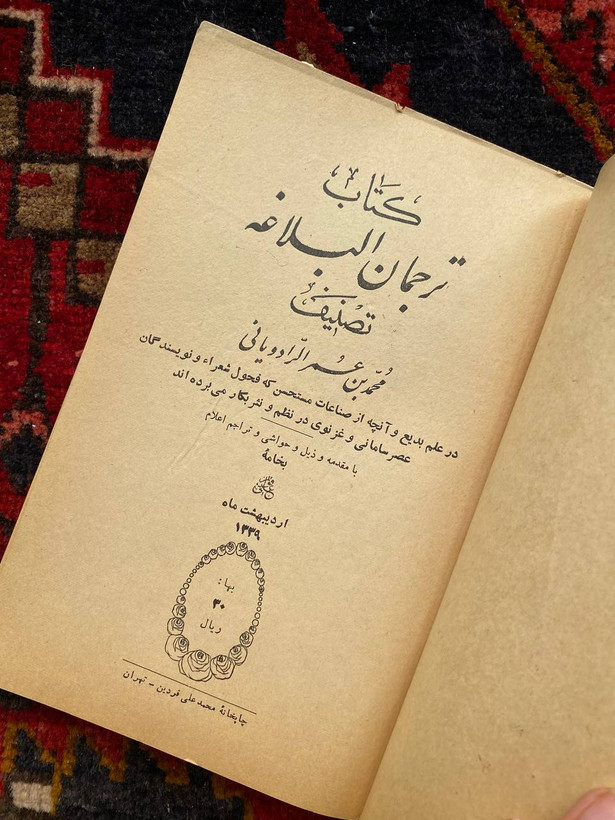 کتاب
ترجمان البلاغه
تصنیف
محمّد بن عُمر الرّادویانی
در علم بدیع و آنچه از صناعات مستحسن که فحول شعراء و نویسندگان
عصر سامانی و غزنوی در نظم و نثر بکار می برده اند
با مقدمه و ذیل و حواشی و تراجم اعلام
بخامهٔ
اردیبهشت ماه
۱۳۳۹
بها:
۳۰
ریال
چاپخانهٔ محمد علی فردین - تهران